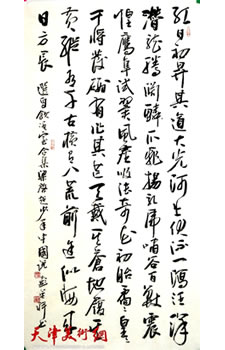 红日初升其道大光河出伏流一泻汪洋
潜龙腾渊鳞爪飞扬乳虎啸谷百兽震
惶鹰隼试翼风尘吸张奇花初胎矞矞皇皇
干将发硎有作其芒天戴其苍地履其
黄纵有千古横有八荒前途似海来
日方长
选自饮冰室合集梁启超少年中国说
天津美术网